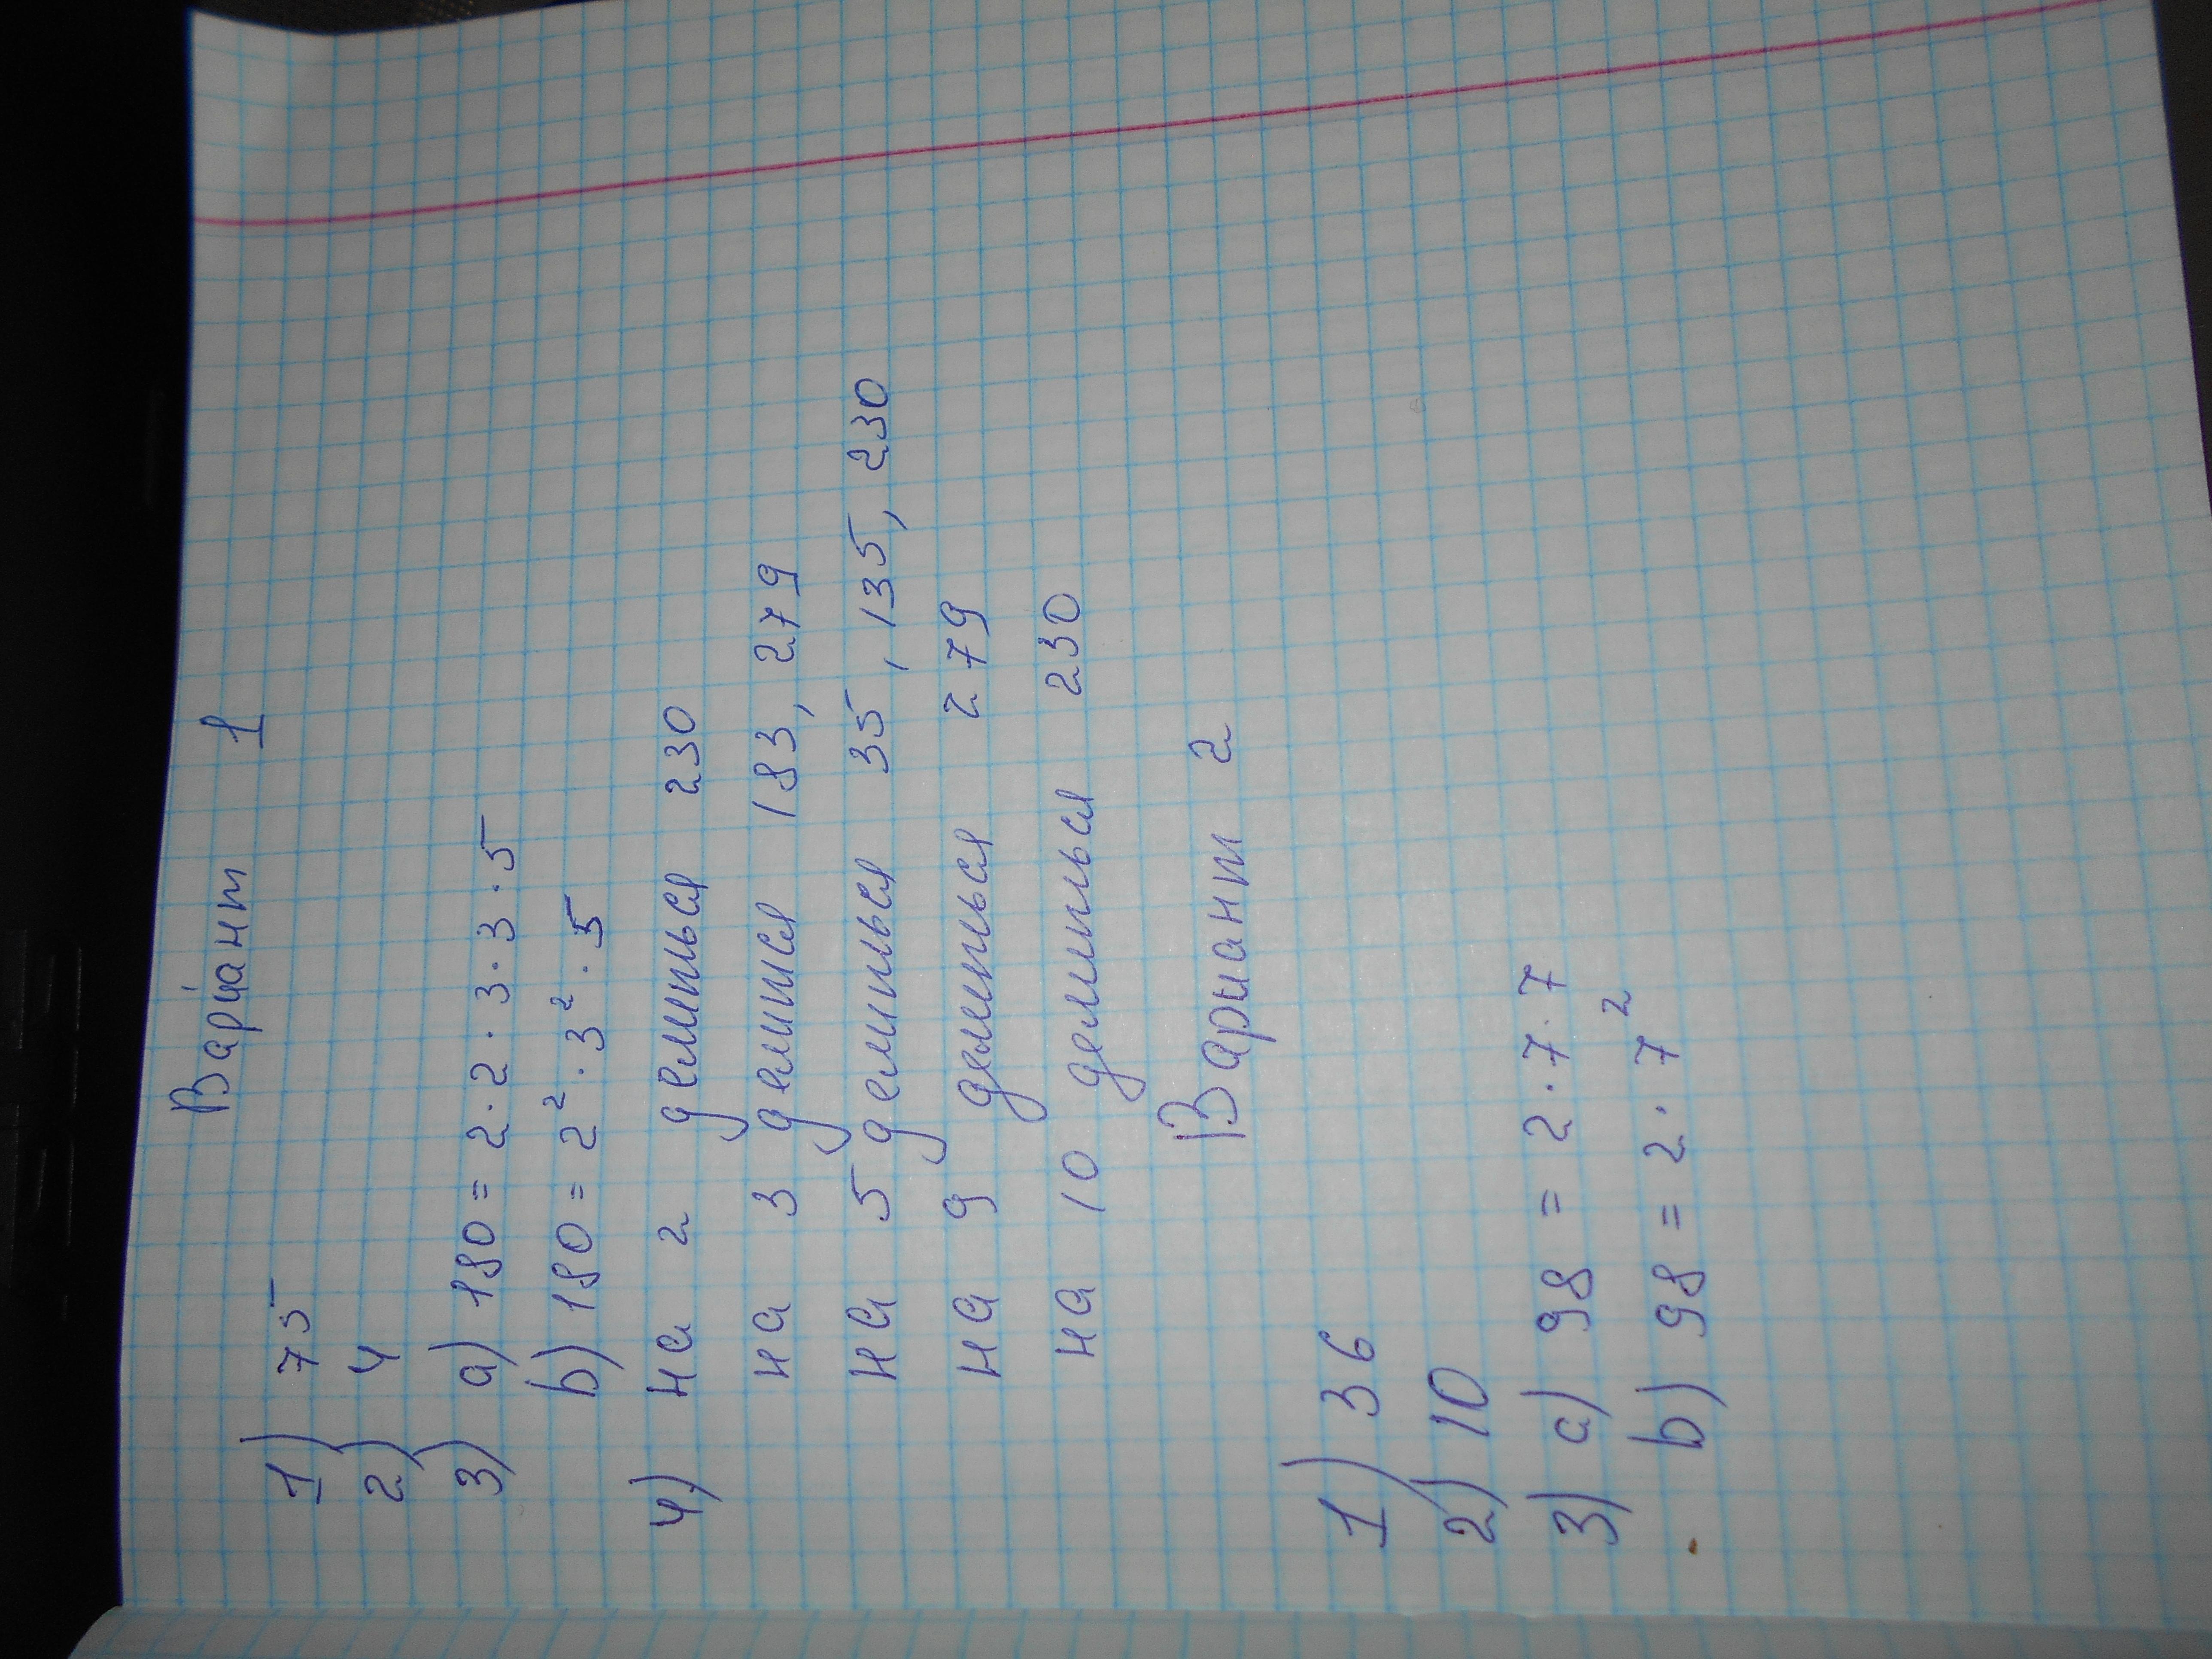 Вариант 1
1) 75
2) 4
3) a) 180 = 2 · 2 · 3 · 3 · 5
b) 180 = 2² · 3² · 5
4) на 2 делиться 230
на 3 делится 183, 279
на 5 делиться 35, 135, 230
на 9 делиться 279
на 10 делиться 230
Вариант 2
1) 36
2) 10
3) a) 98 = 2 · 7 · 7
b) 98 = 2 · 7²